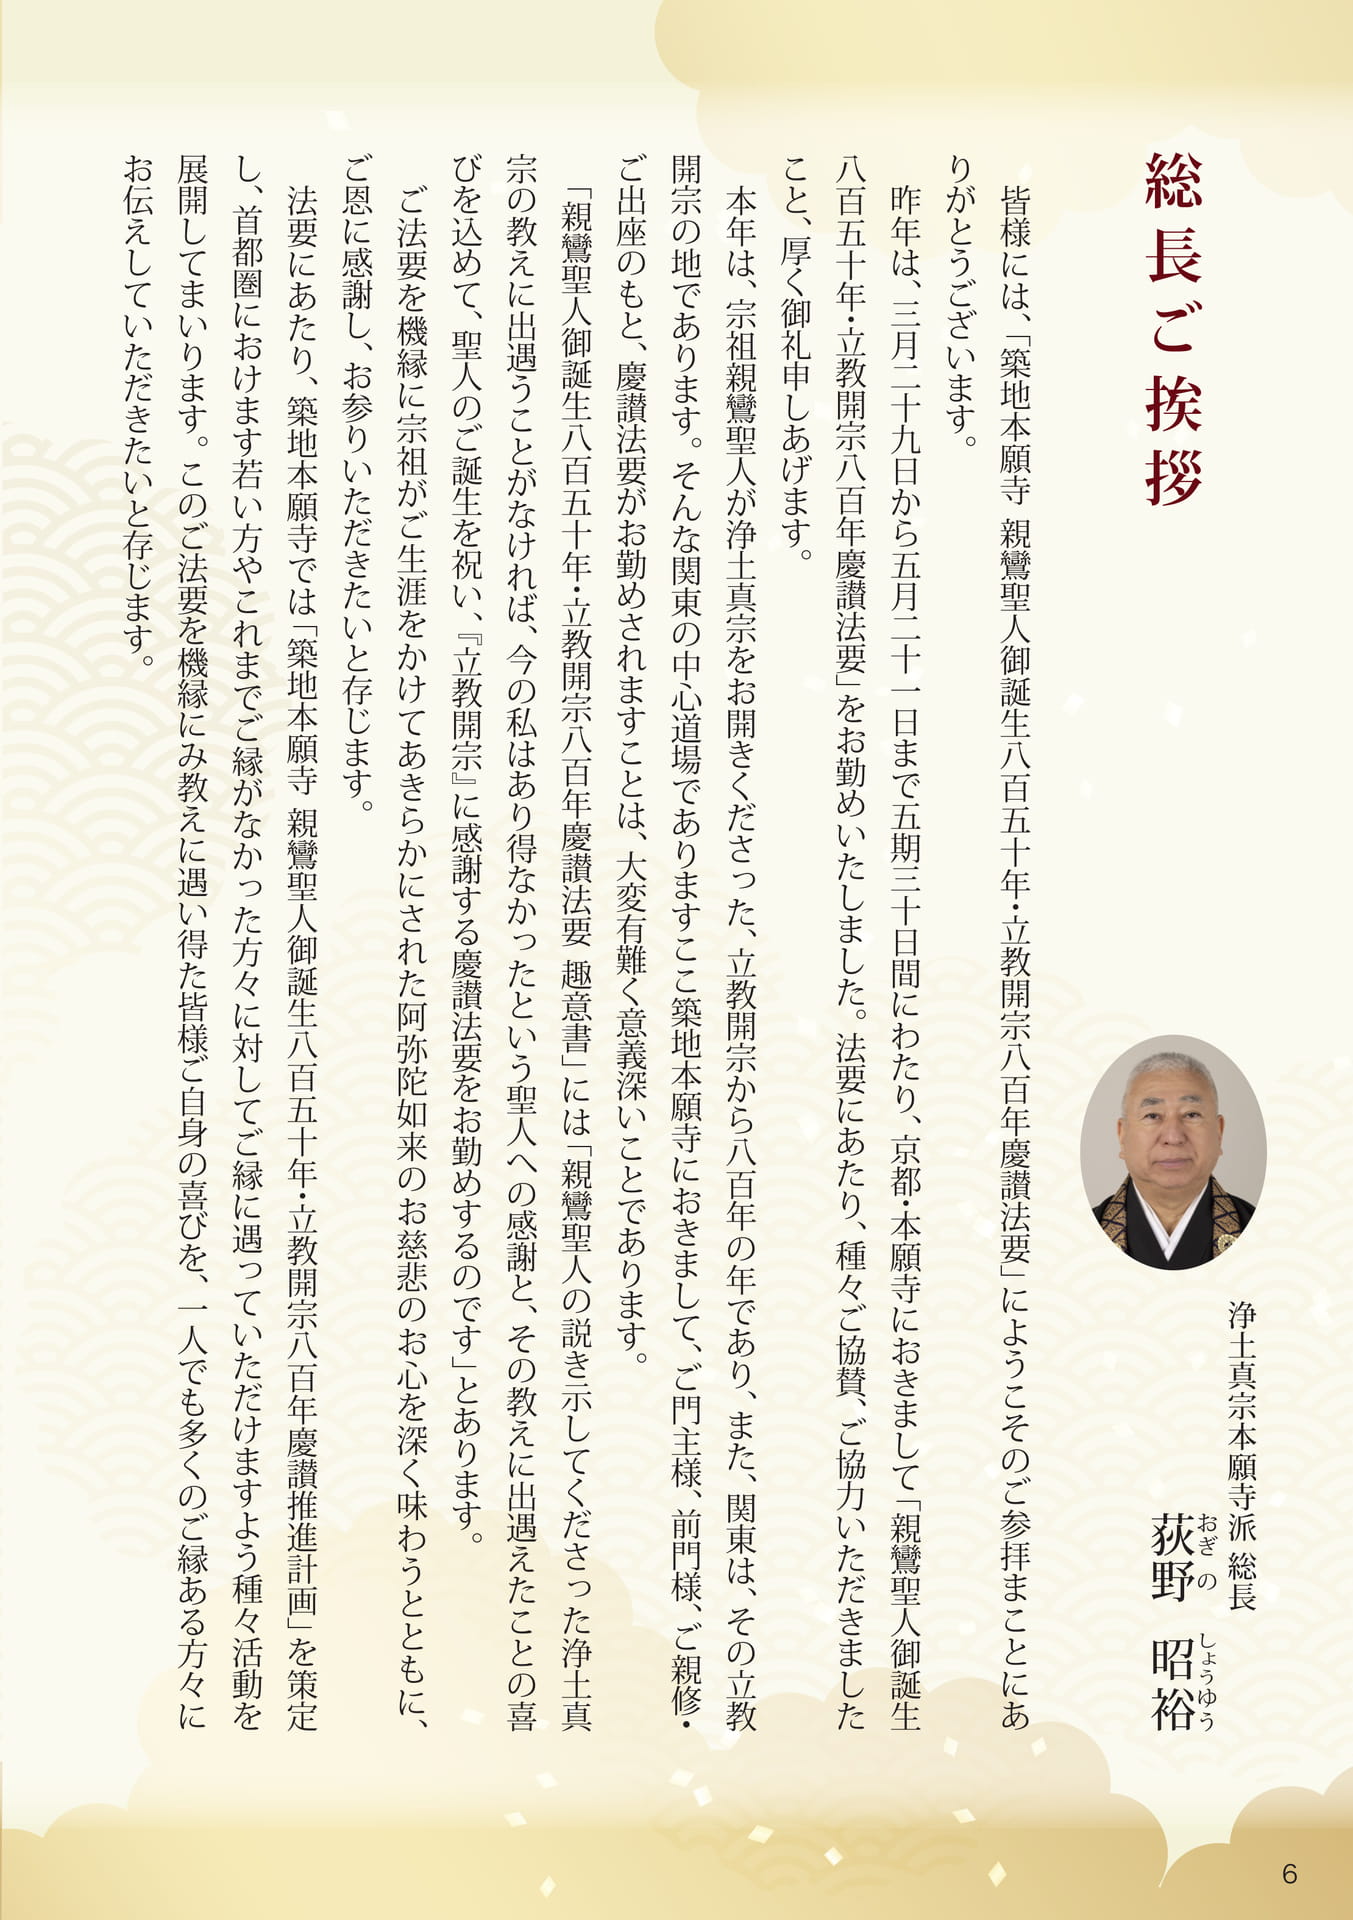 総長ご挨拶
浄土真宗本願寺派 総長
荻野 昭裕
おぎの しょうゆう
皆様には、「築地本願寺 親鸞聖人御誕生八百五十年・立教開宗八百年慶讃法要」にようこそのご参拝まことにあ
りがとうございます。
昨年は、三月二十九日から五月二十一日まで五期三十日間にわたり、京都・本願寺におきまして「親鸞聖人御誕生
八百五十年・立教開宗八百年慶讃法要」をお勤めいたしました。法要にあたり、種々ご協賛、ご協力いただきました
こと、厚く御礼申しあげます。
本年は、宗祖親鸞聖人が浄土真宗をお開きくださった、立教開宗から八百年の年であり、また、関東は、その立教
開宗の地であります。そんな関東の中心道場でありますここ築地本願寺におきまして、ご門主様、前門様、ご親修・
ご出座のもと、慶讃法要がお勤めされますことは、大変有難く意義深いことであります。
「親鸞聖人御誕生八百五十年・立教開宗八百年慶讃法要 趣意書」には「親鸞聖人の説き示してくださった浄土真
宗の教えに出遇うことがなければ、今の私はあり得なかったという聖人への感謝と、その教えに出遇えたことの喜
びを込めて、聖人のご誕生を祝い、『立教開宗』に感謝する慶讃法要をお勤めするのです」とあります。
ご法要を機縁に宗祖がご生涯をかけてあきらかにされた阿弥陀如来のお慈悲のお心を深く味わうとともに、
ご恩に感謝し、お参りいただきたいと存じます。
法要にあたり、築地本願寺では「築地本願寺 親鸞聖人御誕生八百五十年・立教開宗八百年慶讃推進計画」を策定
し、首都圏におけます若い方やこれまでご縁がなかった方々に対してご縁に遇っていただけますよう種々活動を
展開してまいります。このご法要を機縁にみ教えに遇い得た皆様ご自身の喜びを、一人でも多くのご縁ある方々に
お伝えしていただきたいと存じます。
6